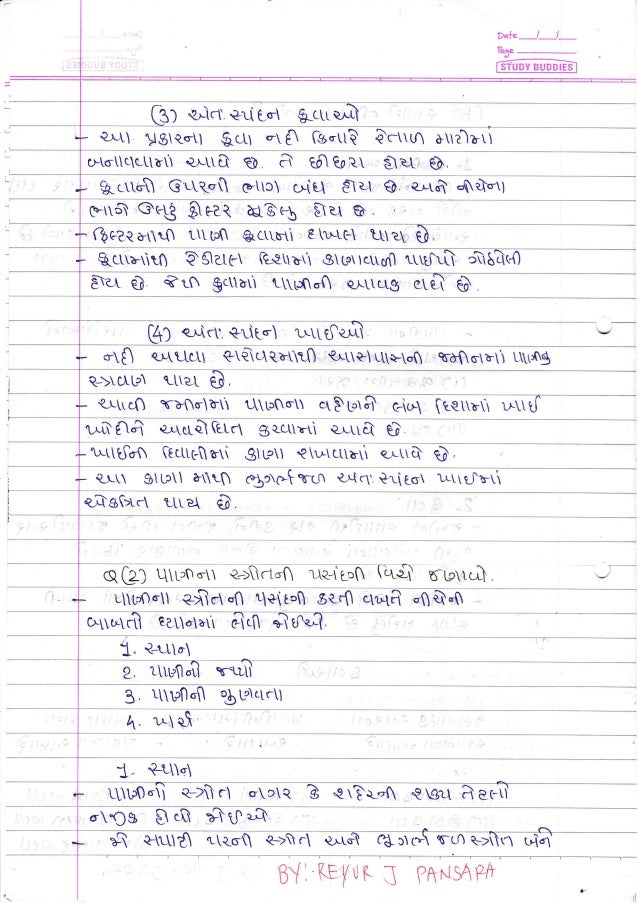 Date __/__/__
Page ______
STUDY BUDDIES
(3) અંતઃસ્પંદન કૂવાઓ
- આ પ્રકારના કૂવા નદી કિનારે રેતાળ માટીમાં
બનાવવામાં આવે છે. તે છીછરા હોય છે.
- કૂવાની ઉપરની ભાગ બંધ હોય છે અને નીચેના
ભાગે ઉલટું ફીલ્ટર મૂકેલુ હોય છે.
- ફિલ્ટરમાથી પાણી કૂવામાં દાખલ થાય છે.
- કૂવામાંથી રેડીયલ દિશામાં કાણાવાની પાઈપો ગોઠવેલી
હોય છે. જેથી કુવામાં પાણીની આવક વધે છે.
(4) અંતઃસ્પંદન ખાઈઓ
- નદી અથવા સરોવરમાથી આસપાસની જમીનમાં પાણીનુ
સ્ત્રાવણ થાય છે.
- આવી જમીનમાં પાણીના વહેણને લંબ દિશામાં ખાઈ
ખોદીને અવરોધિત કરવામાં આવે છે.
- ખાઈની દિવાલીમાં કાણા રાખવામાં આવે છે.
- આ કાણા માંથી ભુગર્ભજળ અંતઃસ્પંદન ખાઈમાં
એકત્રિત થાય છે.
Q(2) પાણીના સ્ત્રોતની પસંદગી વિશે જણાવો.
- પાણીના સ્ત્રોતની પસંદગી કરતી વખતે નીચેની
બાબતો ધ્યાનમાં લેવી જોઈએ.
1. સ્થાન
2. પાણીનો જથ્થો
3. પાણીની ગુણવતા
4. ખર્ચ
1. સ્થાન
- પાણીનો સ્ત્રોત નગર કે શહેરની શક્ય તેટલો
નજીક હોવો જોઈએ.
- જો સપાટી પરનો સ્ત્રોત અને ભુગર્ભ જળ સ્ત્રોત બંને
BY:- REYUR J PANSARA